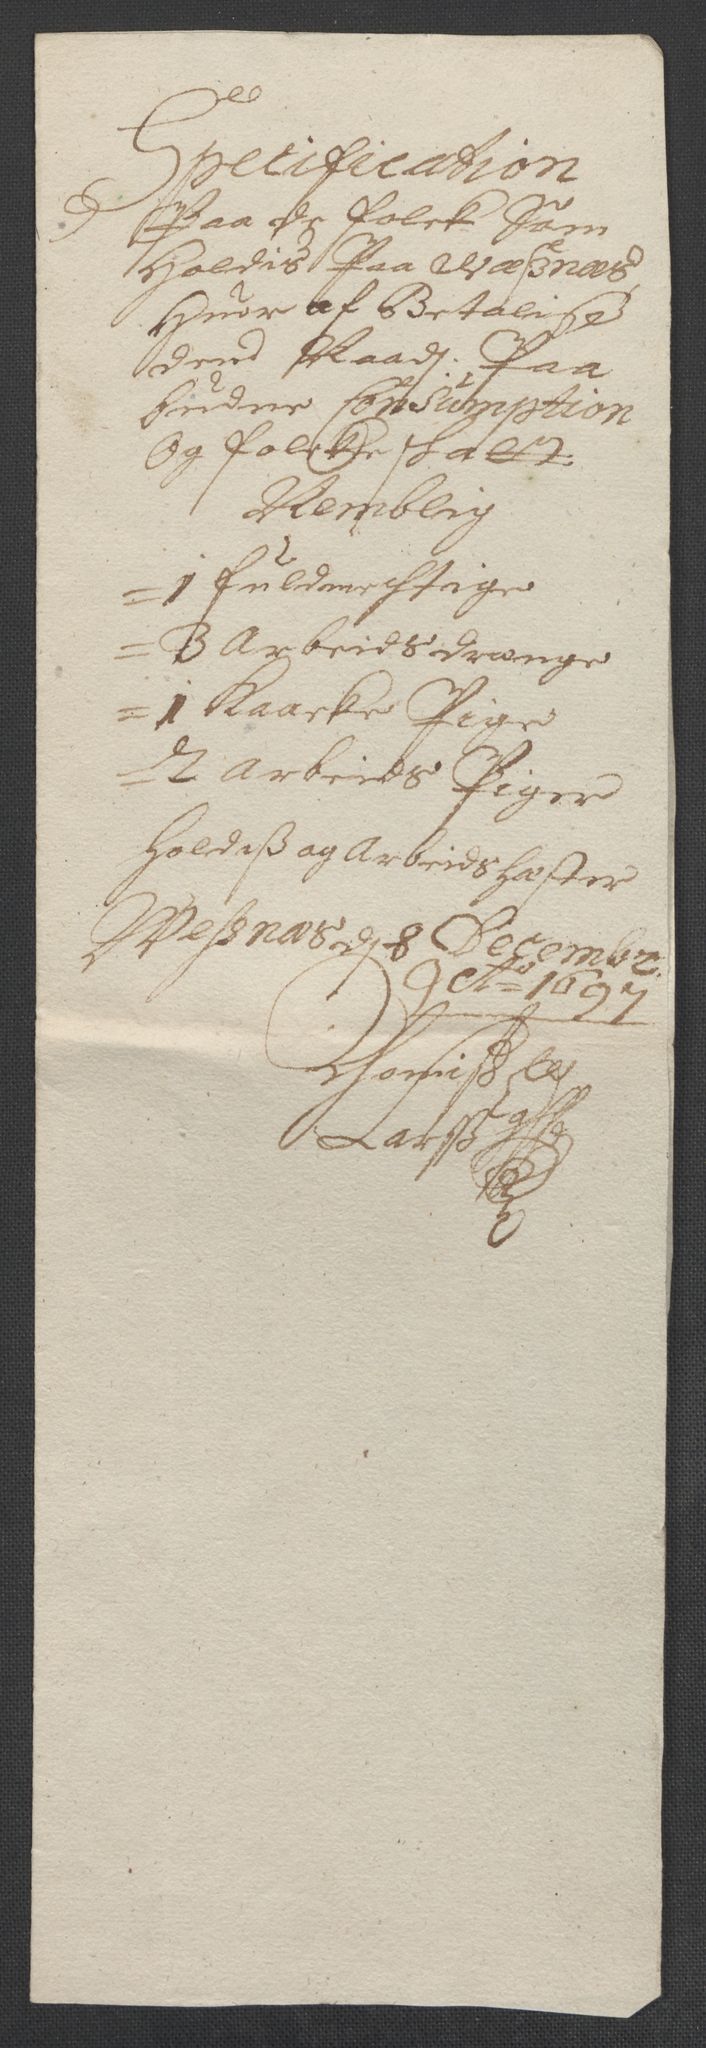 Specification
Paa de folck Som
Holdis Paa Wæsnæs
Huor af Betaliss
dend Naad: Paa
budne Consumption
og folcke schatt
Nemblig
= 1 fuldmechtige
= 3 Arbeids drænge
= 1 Kaacke Pige
= 2 Arbeids Piger
Holdess og Arbeids hæster
Wessnæs d 8 Decembr:
Ao 1697
Thomiss
Larss